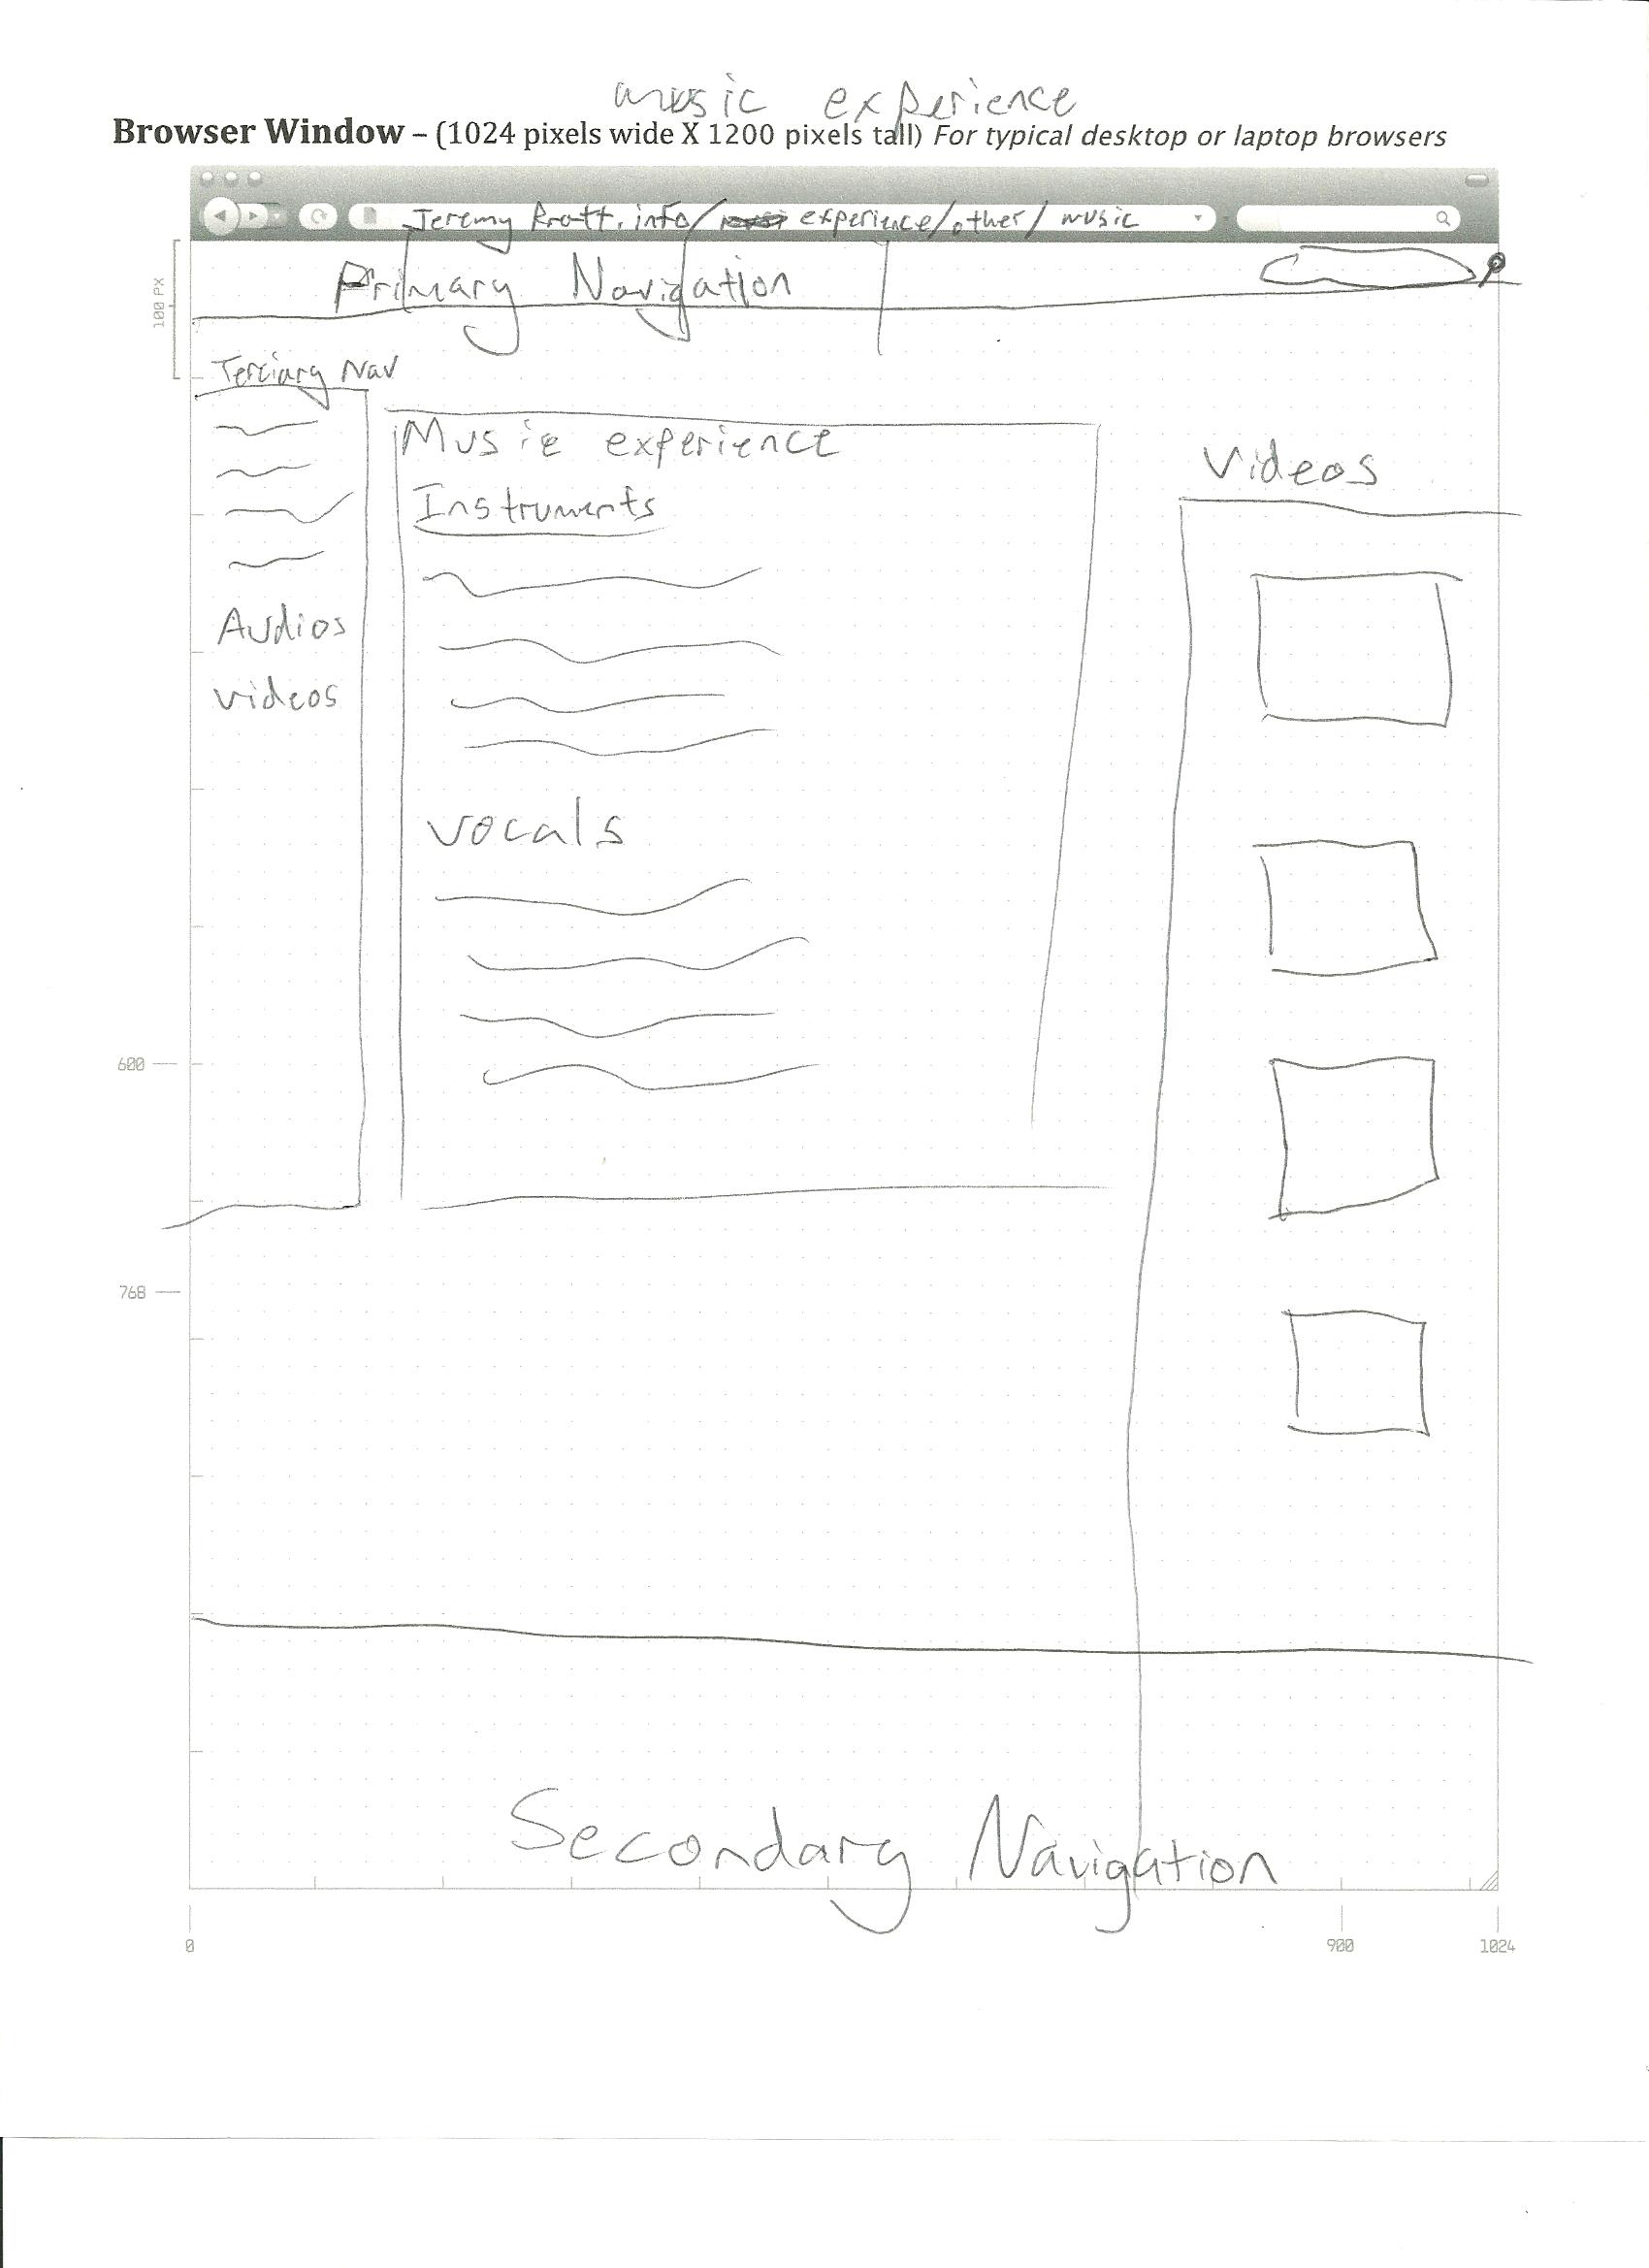 music experience
Browser Window – (1024 pixels wide X 1200 pixels tall) For typical desktop or laptop browsers
Jeremy Pratt.info/ experience/other/ music
100 PX
Primary Navigation
Terciary Nav
Music experience
Videos
Instruments
Audios
videos
vocals
600
768
Secondary Navigation
0
900
1024